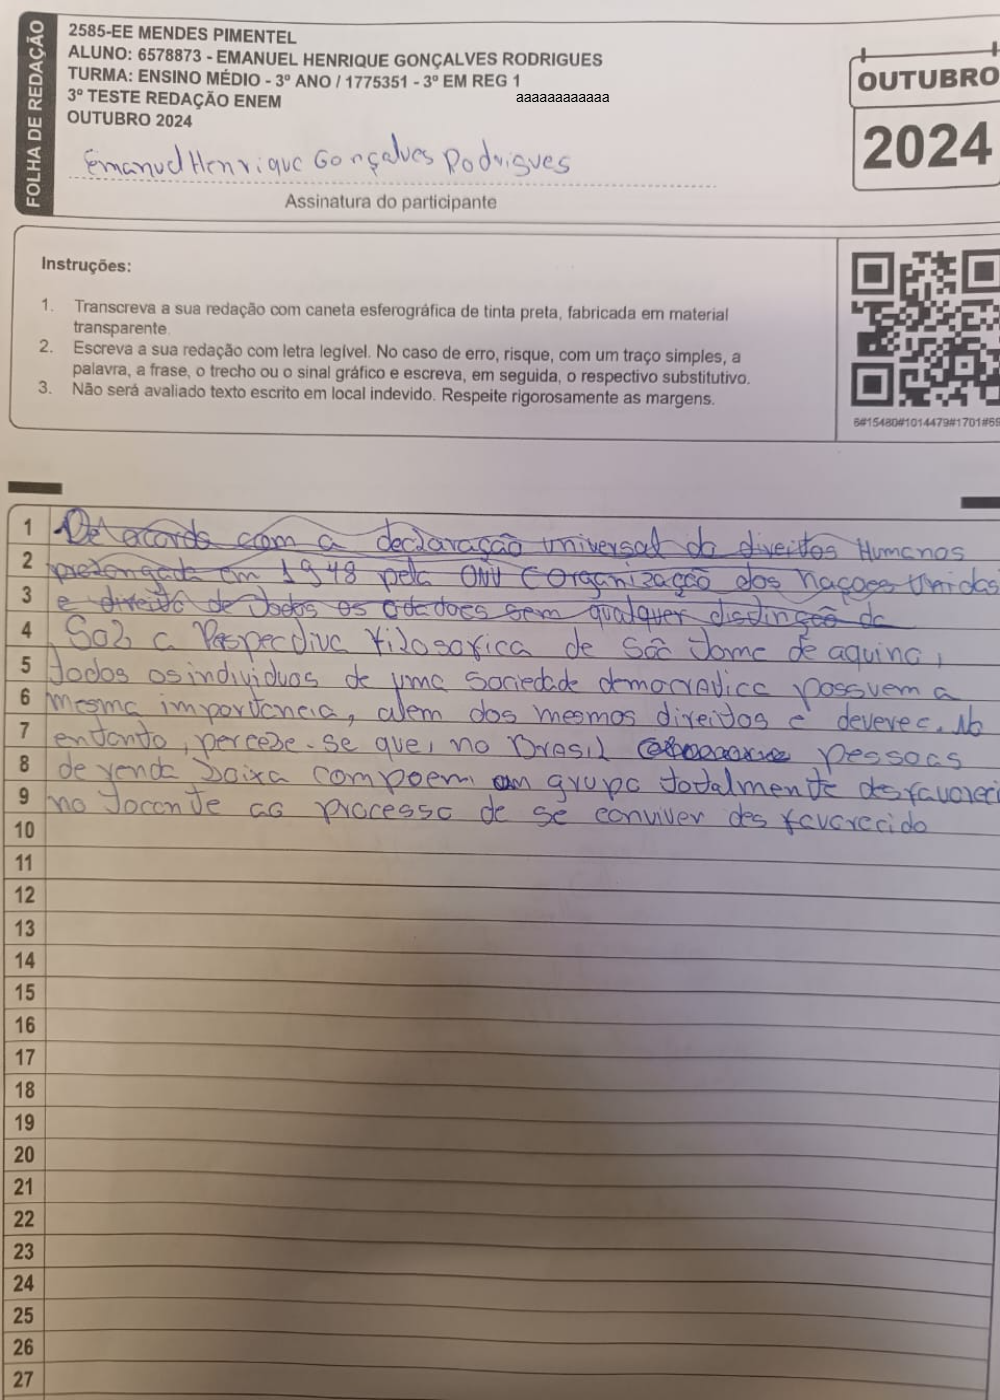 FOLHA DE REDAÇÃO
2585-EE MENDES PIMENTEL
ALUNO: 6578873 - EMANUEL HENRIQUE GONÇALVES RODRIGUES
TURMA: ENSINO MÉDIO - 3º ANO / 1775351 - 3º EM REG 1
3º TESTE REDAÇÃO ENEM
aaaaaaaaaaaa
OUTUBRO 2024
Emanuel Henrique Gonçalves Rodrigues
Assinatura do participante
OUTUBRO
2024
Instruções:
1. Transcreva a sua redação com caneta esferográfica de tinta preta, fabricada em material
transparente.
2. Escreva a sua redação com letra legível. No caso de erro, risque, com um traço simples, a
palavra, a frase, o trecho ou o sinal gráfico e escreva, em seguida, o respectivo substitutivo.
3. Não será avaliado texto escrito em local indevido. Respeite rigorosamente as margens.
6#15480#1014479#1701#69
1 De acordo com a declaração universal do direitos Humanos
2 prolongada em 1948 pela ONU (Organização dos Nações Unidas
3 e direito de todos os cidadoes sem qualquer distinção de
4 Sob a Perspectiva filosofica de São Tome de aquino,
5 todos os individuos de uma sociedade democratica possuem a
6 mesma importância, alem dos mesmos direitos e deveres. No
7 entanto, percebe-se que, no Brasil pessoas
8 de renda baixa compoem um grupo totalmente desfavoreci
9 no tocante ao processo de se conviver desfavorecido
10
11
12
13
14
15
16
17
18
19
20
21
22
23
24
25
26
27